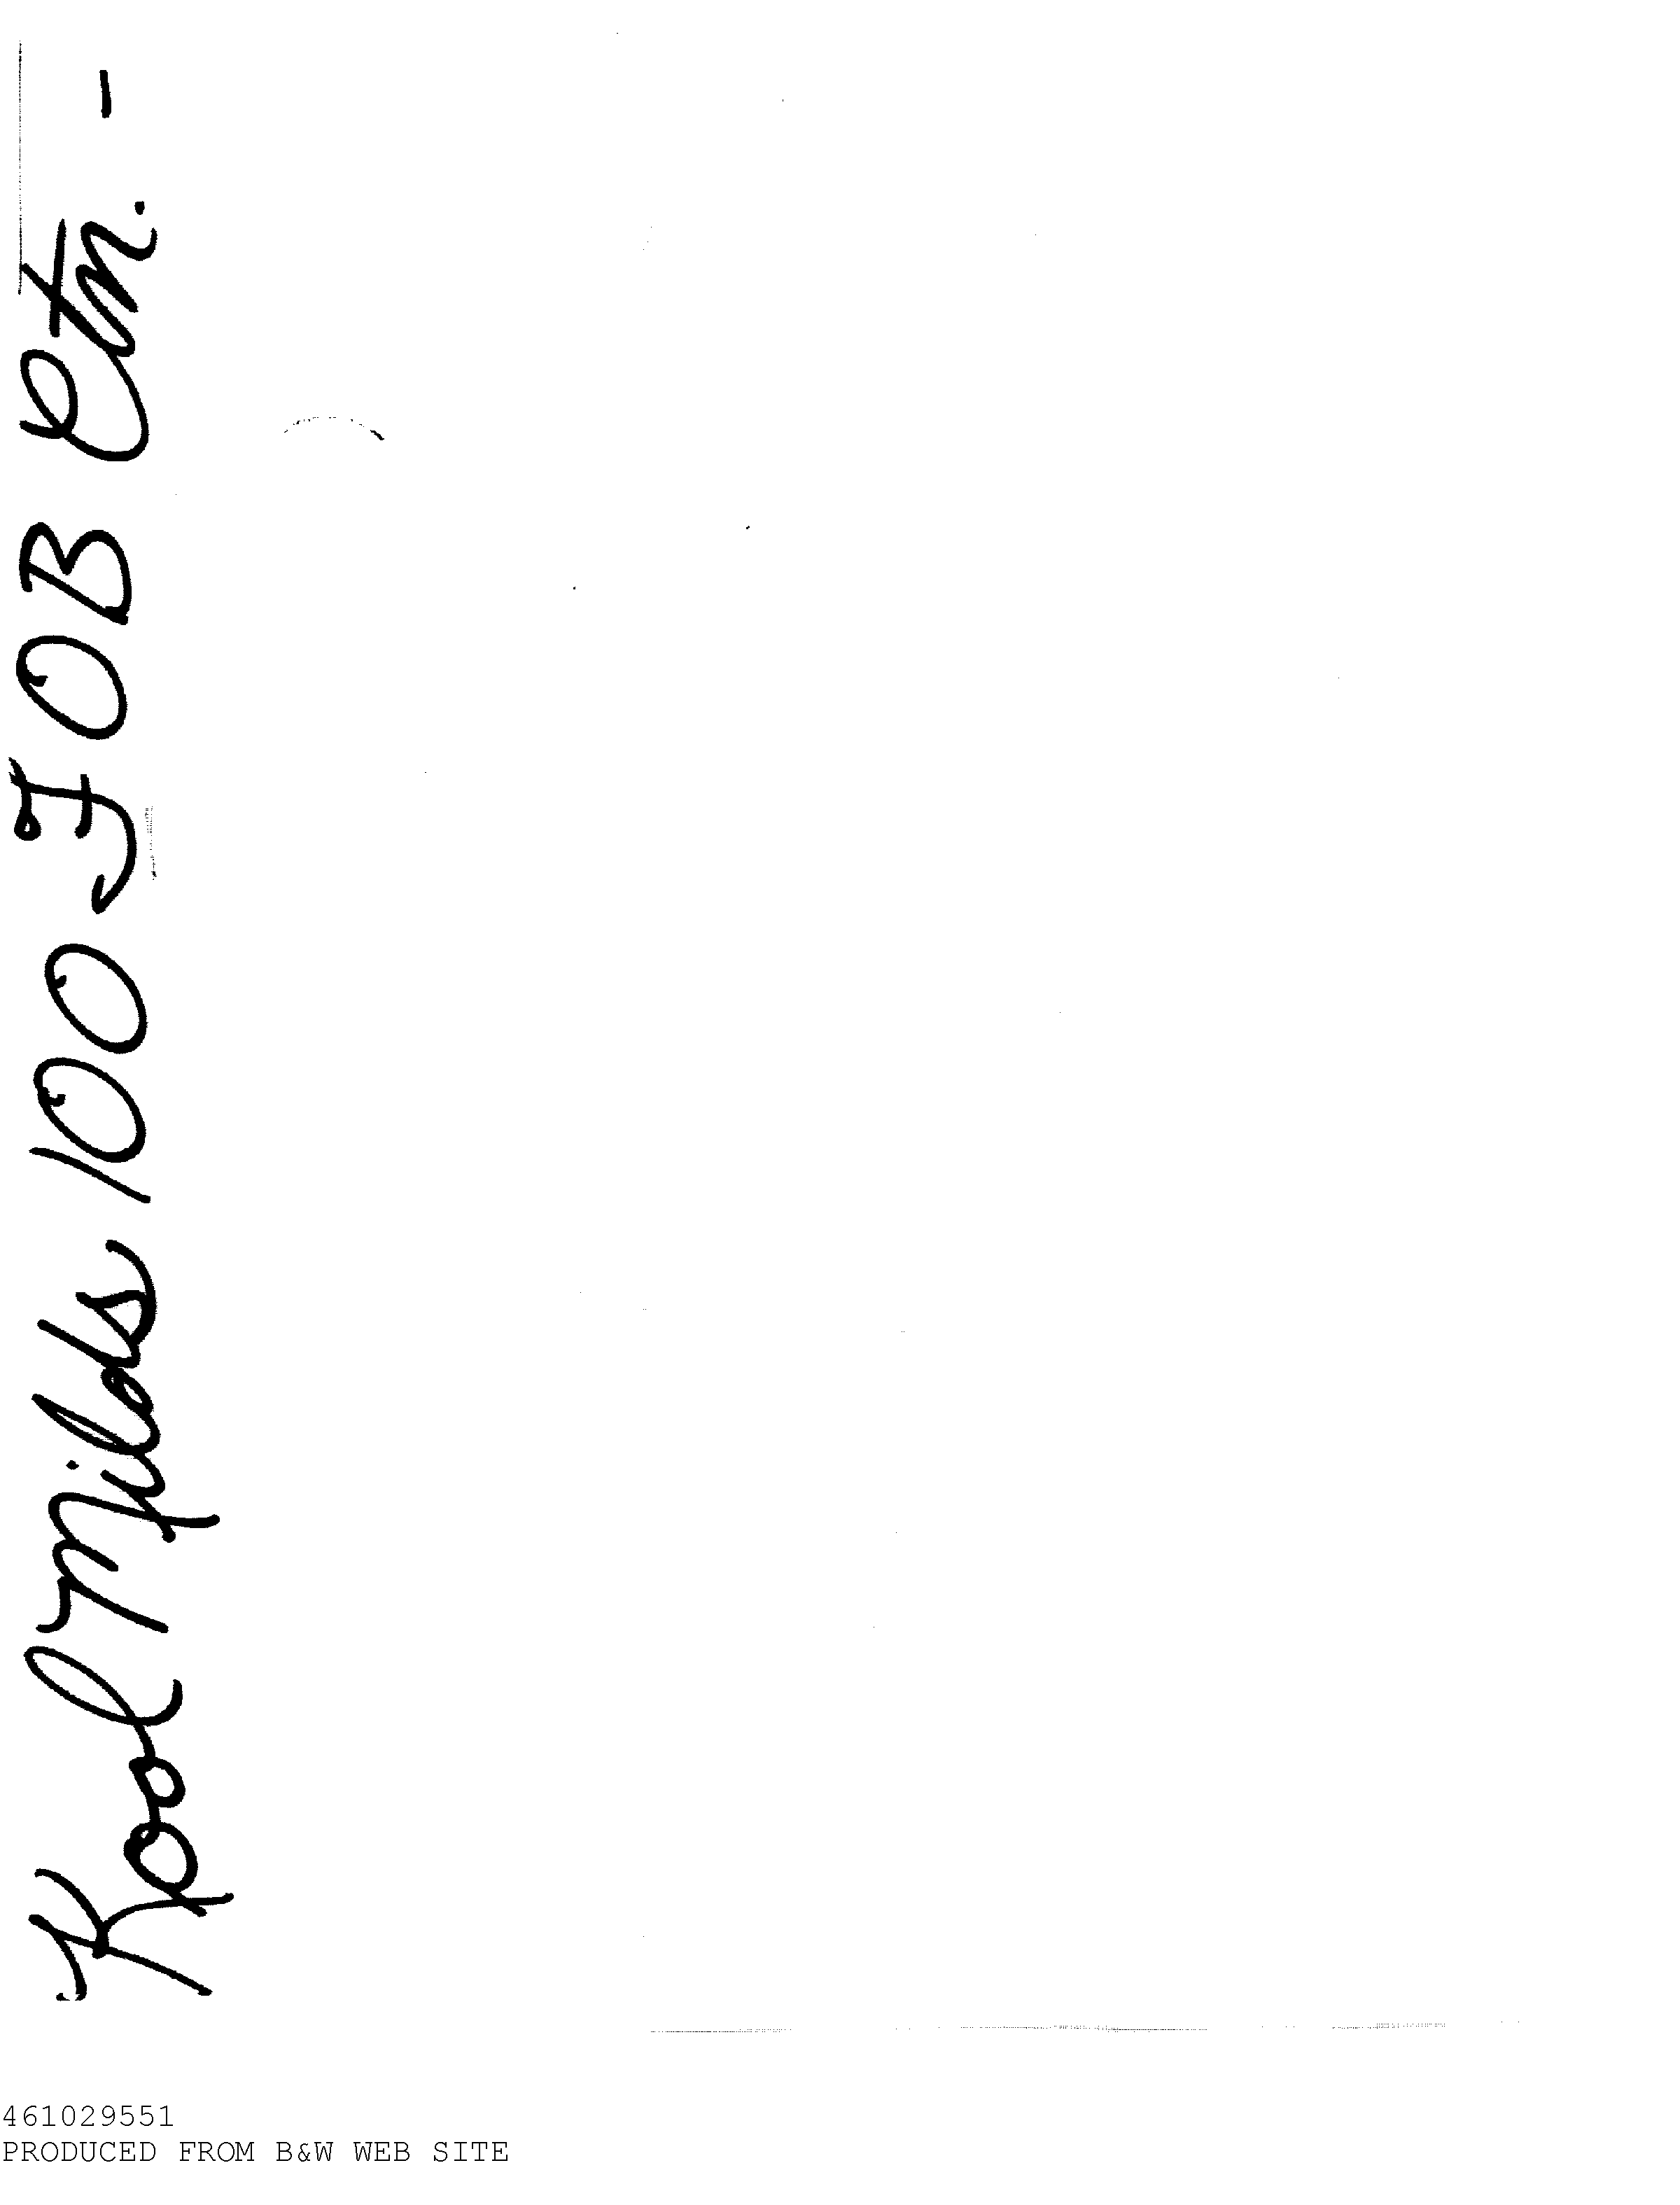 Kool Milds 100 FOB Ctn. -
461029551
PRODUCED FROM B&W WEB SITE